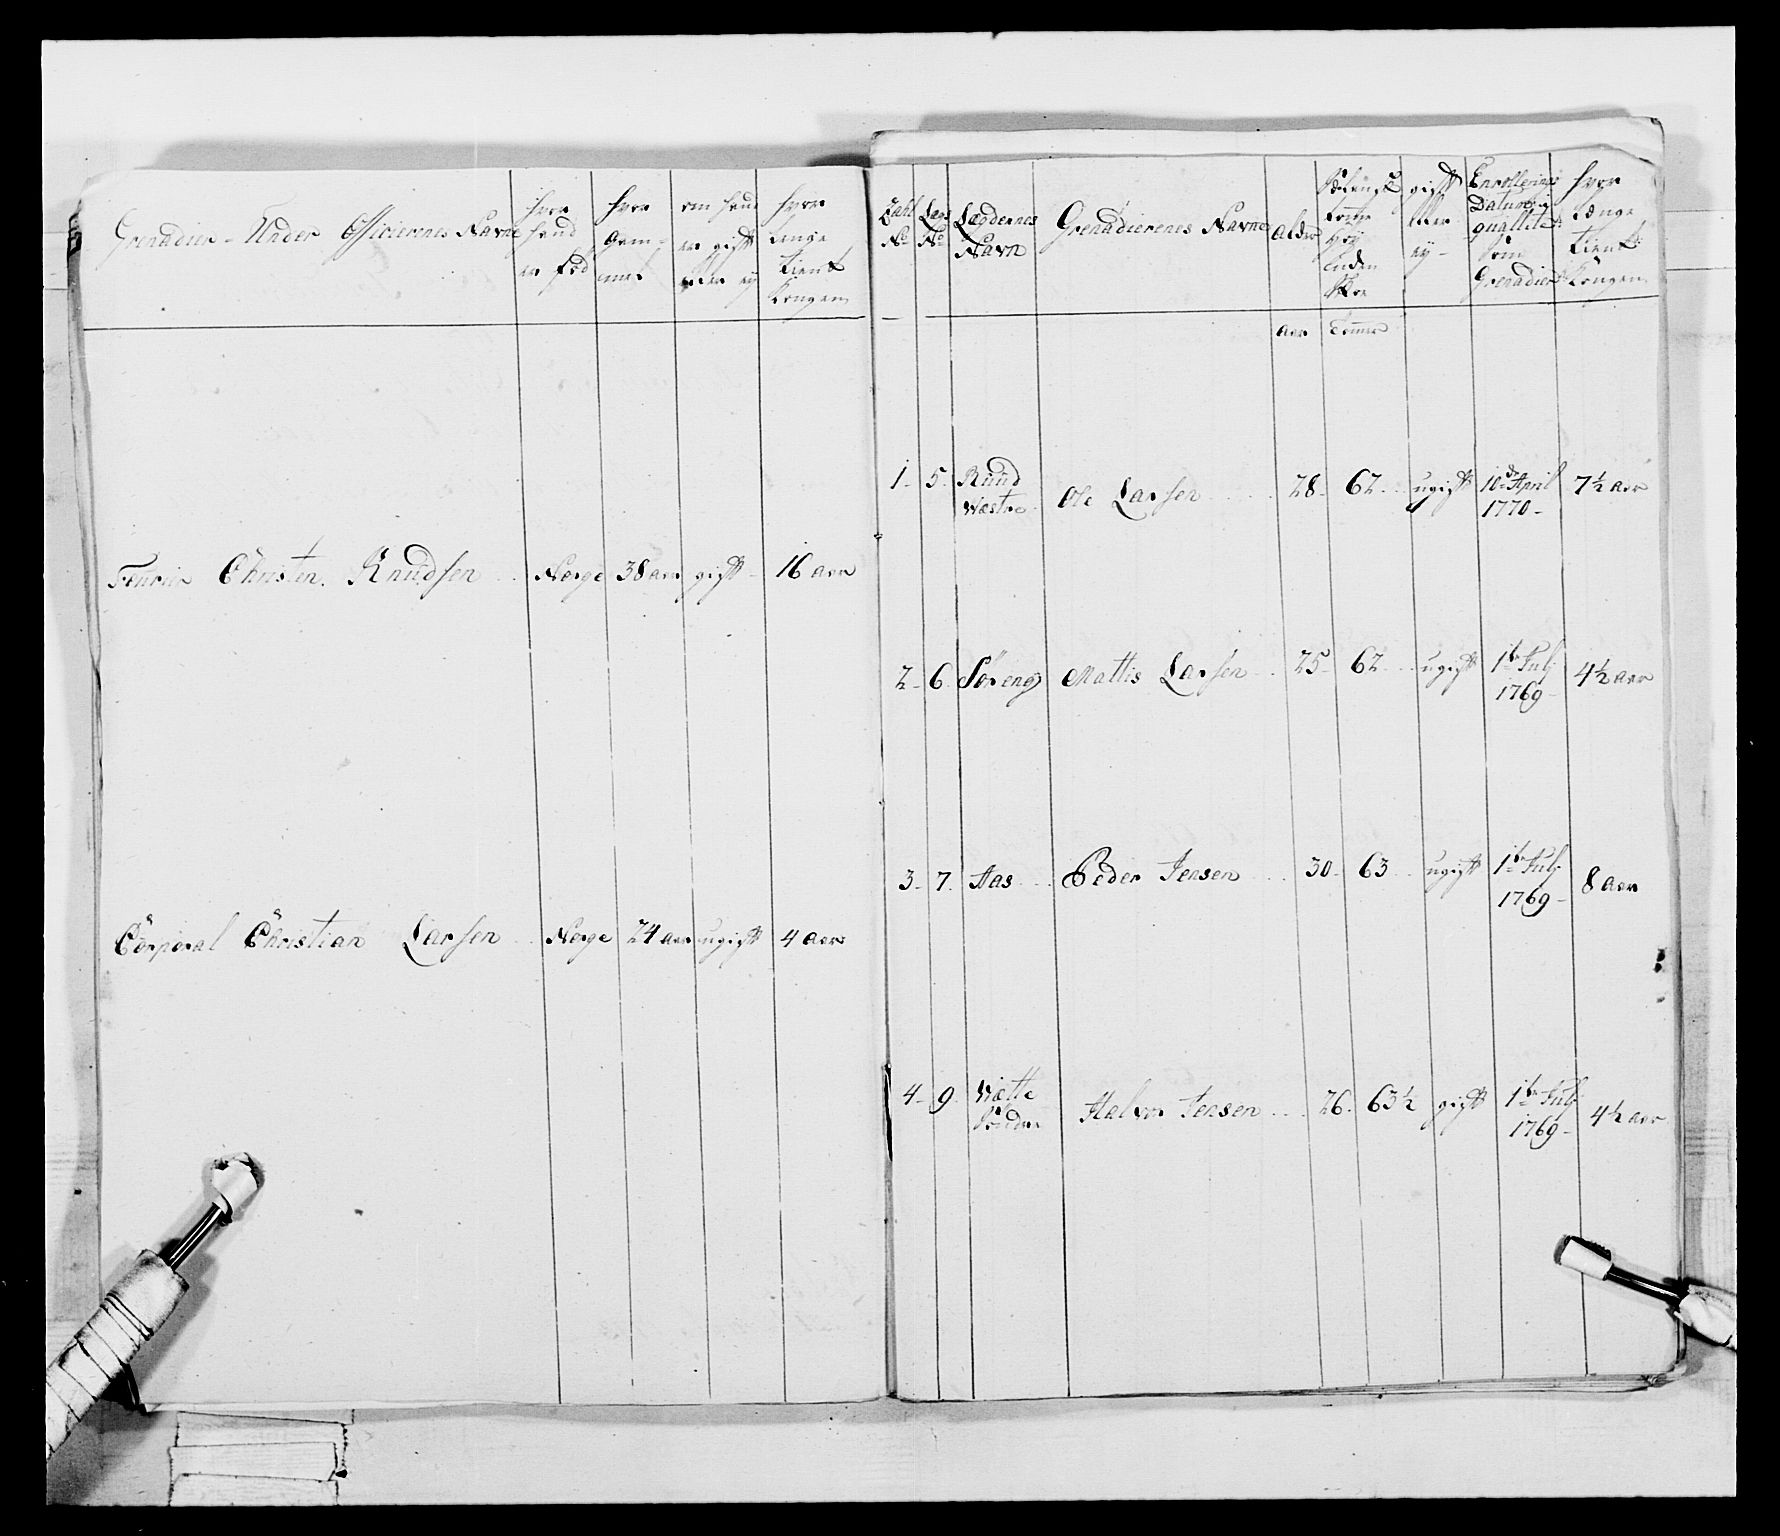 Grenadier-Under Officierenes Navne
hvor
hand
er fød
hvor
gam-
mel
om hand
er gift
eller ey
hvor
lenge
tient
Kongen
Fourier Christen Knudsen Norge 38 aar gift 16 aar
Corporal Christian Larsen Norge 24 aar ugift 4 aar
No
Lægs
No
Lægdernes
Navn
Grenadierenes Navne
Alder
Høy
uden
Skoe
gift
eller
ey
Enrollerings
Datum
som
Grenadier
hvor
længe
tient
Kongen
aar Tommer
1 5 Ruud
Wæstre
Ole Larsen 28 62 ugift 10de April
1770
7½ aar
2 6 Søreng Mattis Larsen 25 62 ugift 1te Julj
1769
4½ aar
3 7 Aas Peder Jensen 30 63 ugift 1te Julj
1769
8 aar
4 9 Wætte
Søndre
Halvor Jensen 26 63½ gift 1te Julj
1769
4½ aar